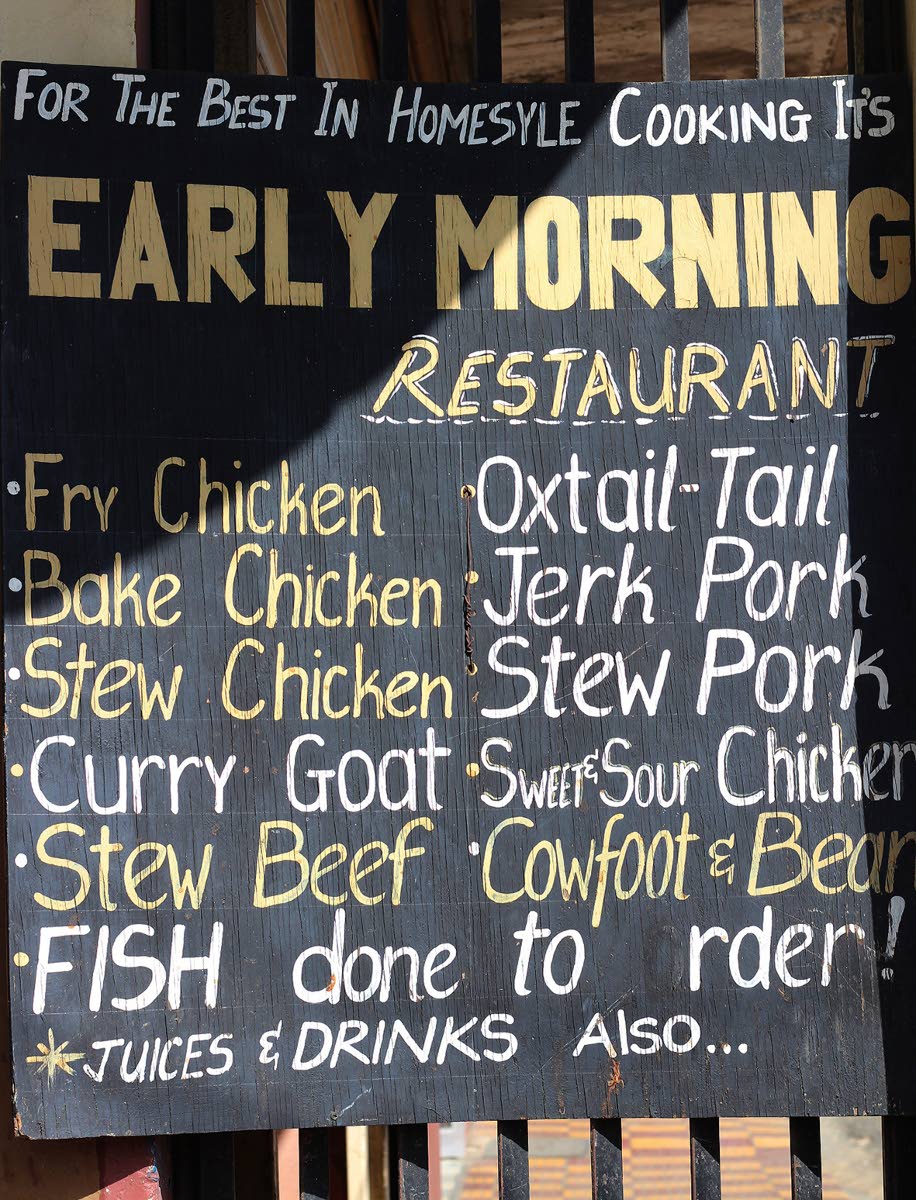 FOR THE BEST IN HOMESYLE COOKING IT'S
EARLY MORNING
RESTAURANT
• Fry Chicken
• Bake Chicken
• Stew Chicken
• Curry Goat
• Stew Beef
• Oxtail-Tail
• Jerk Pork
• Stew Pork
• SWEET & Sour Chicken
• Cowfoot & Bean
• FISH done to rder!
* JUICES & DRINKS Also...